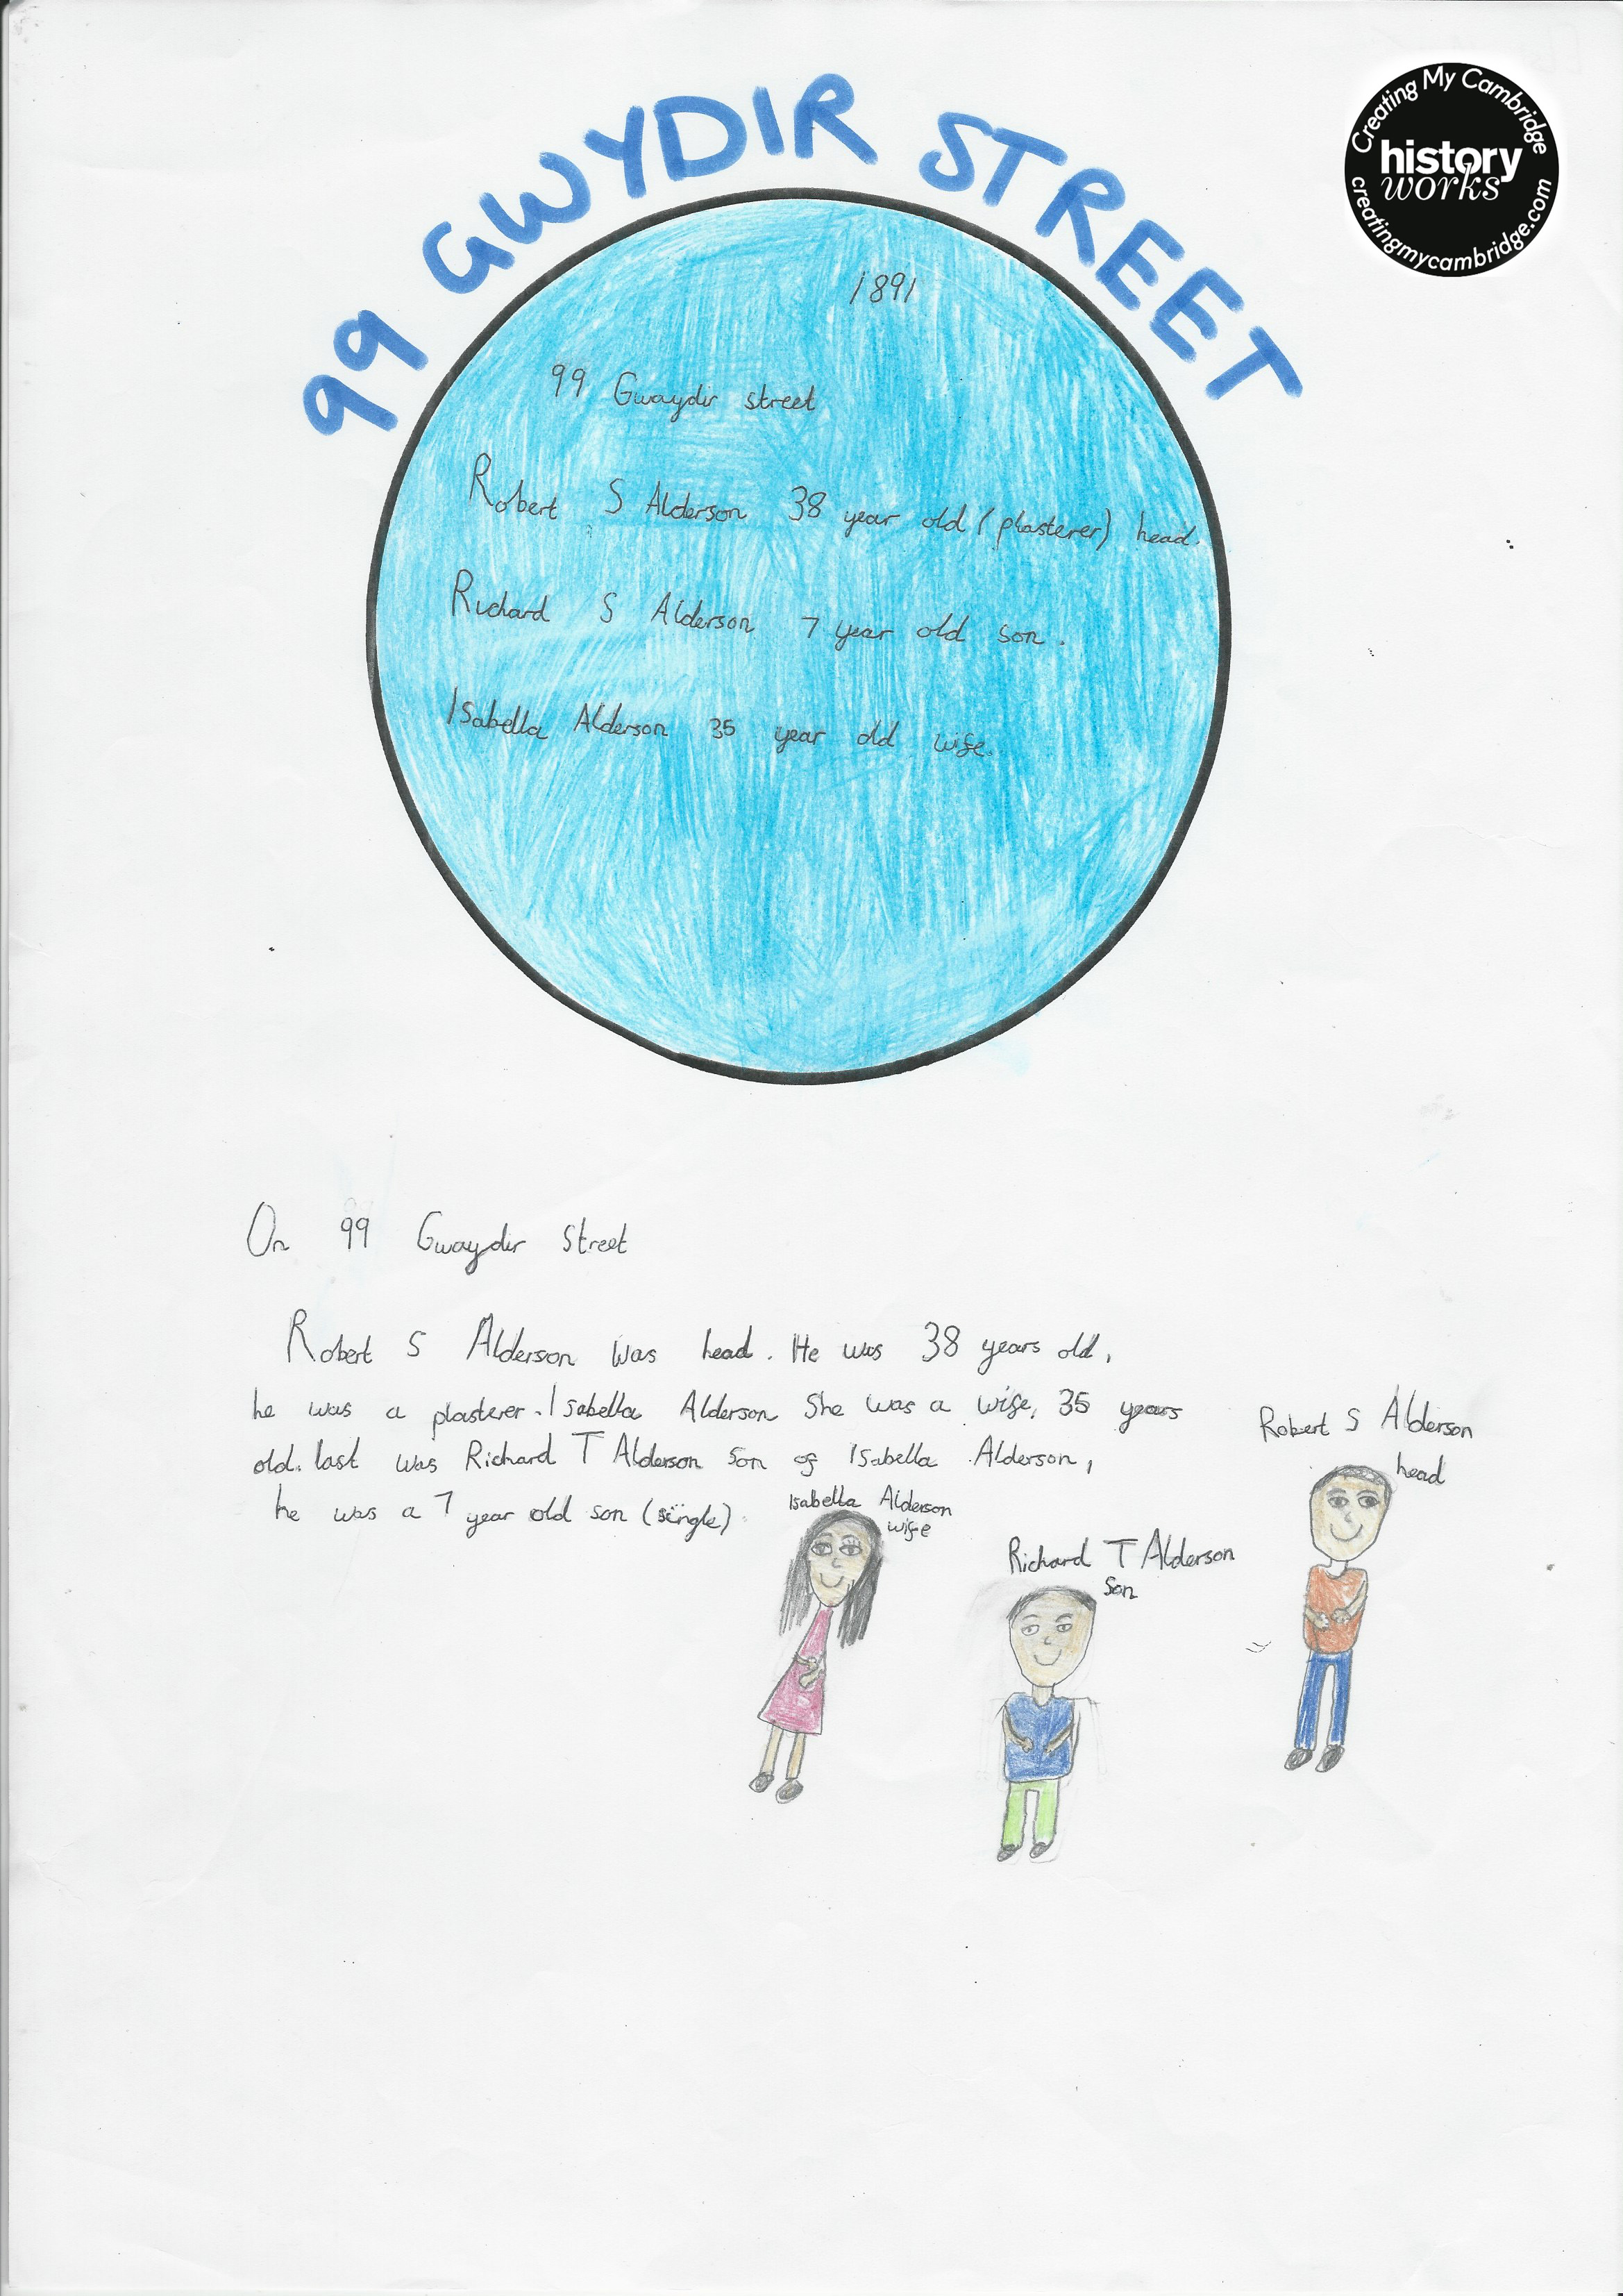 99 GWYDIR STREET
Creating My Cambridge
history
works
creatingmycambridge.com
1891
99 Gwaydir street
Robert S Alderson 38 year old (plasterer) head.
Richard S Alderson 7 year old son.
Isabella Alderson 35 year old wife.
On 99 Gwaydir Street
Robert S Alderson was head. He was 38 years old,
he was a plasterer. Isabella Alderson She was a wife, 35 years
old. last was Richard T Alderson son of Isabella Alderson,
he was a 7 year old son (single)
Isabella Alderson
wife
Richard T Alderson
son
Robert S Alderson
head